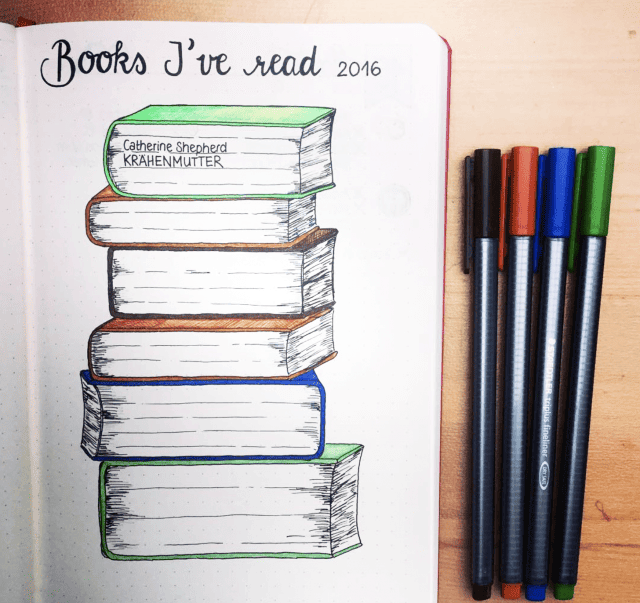 Books I've read 2016
Catherine Shepherd
KRÄHENMUTTER
triplus fineliner